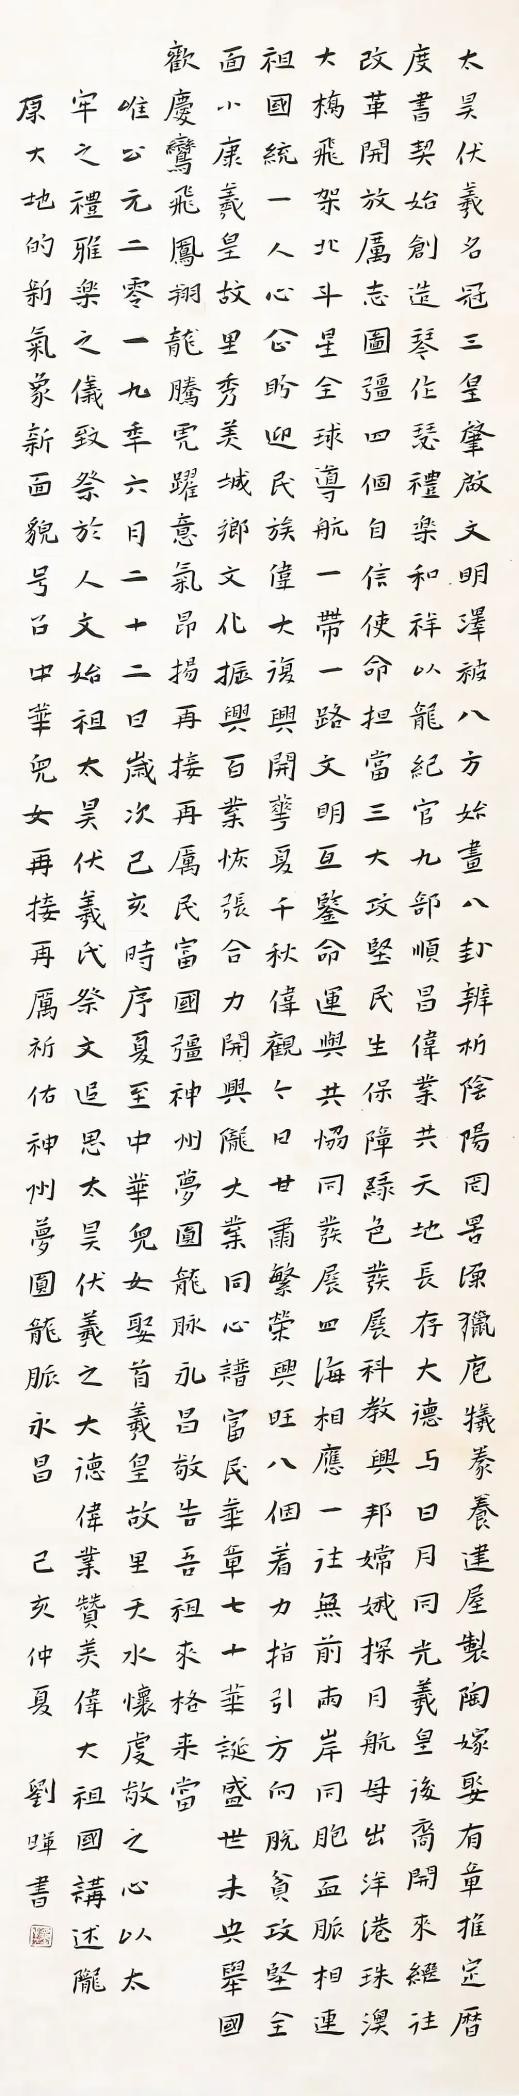 太昊伏羲名冠三皇肇啟文明澤被八方始畫八卦辨析陰陽罔罟漁獵庖犧豢養建屋製陶嫁娶有章推定曆
度書契始創造琴作瑟禮樂和祥以龍紀官九部順昌偉業共天地長存大德与日月同光羲皇後裔開來繼往
改革開放厲志圖彊四個自信使命担當三大攻堅民生保障綠色發展科教興邦嫦娥探月航母出洋港珠澳
大橋飛架北斗星全球導航一帶一路文明互鑒命運與共協同發展四海相應一往無前兩岸同胞血脈相連
祖國統一人心企盼迎民族偉大復興開夢夏千秋偉觀今日甘肅繁榮興旺八個着力指引方向脫貧攻堅全
面小康羲皇故里秀美城鄉文化振興百業恢張合力開興隴大業同心譜富民華章七十華誕盛世未央舉國
歡慶鸞飛鳳翔龍騰虎躍意氣昂揚再接再厲民富國彊神州夢圓龍脉永昌敬告吾祖來格来當
唯公元二零一九年六月二十二日歲次己亥時序夏至中華兒女聚首羲皇故里天水懷虔敬之心以太
牢之禮雅樂之儀致祭於人文始祖太昊伏羲氏祭文追思太昊伏羲之大德偉業贊美偉大祖國講述隴
原大地的新氣象新面貌号召中華兒女再接再厲祈佑神州夢圓龍脈永昌 己亥仲夏 劉暉書